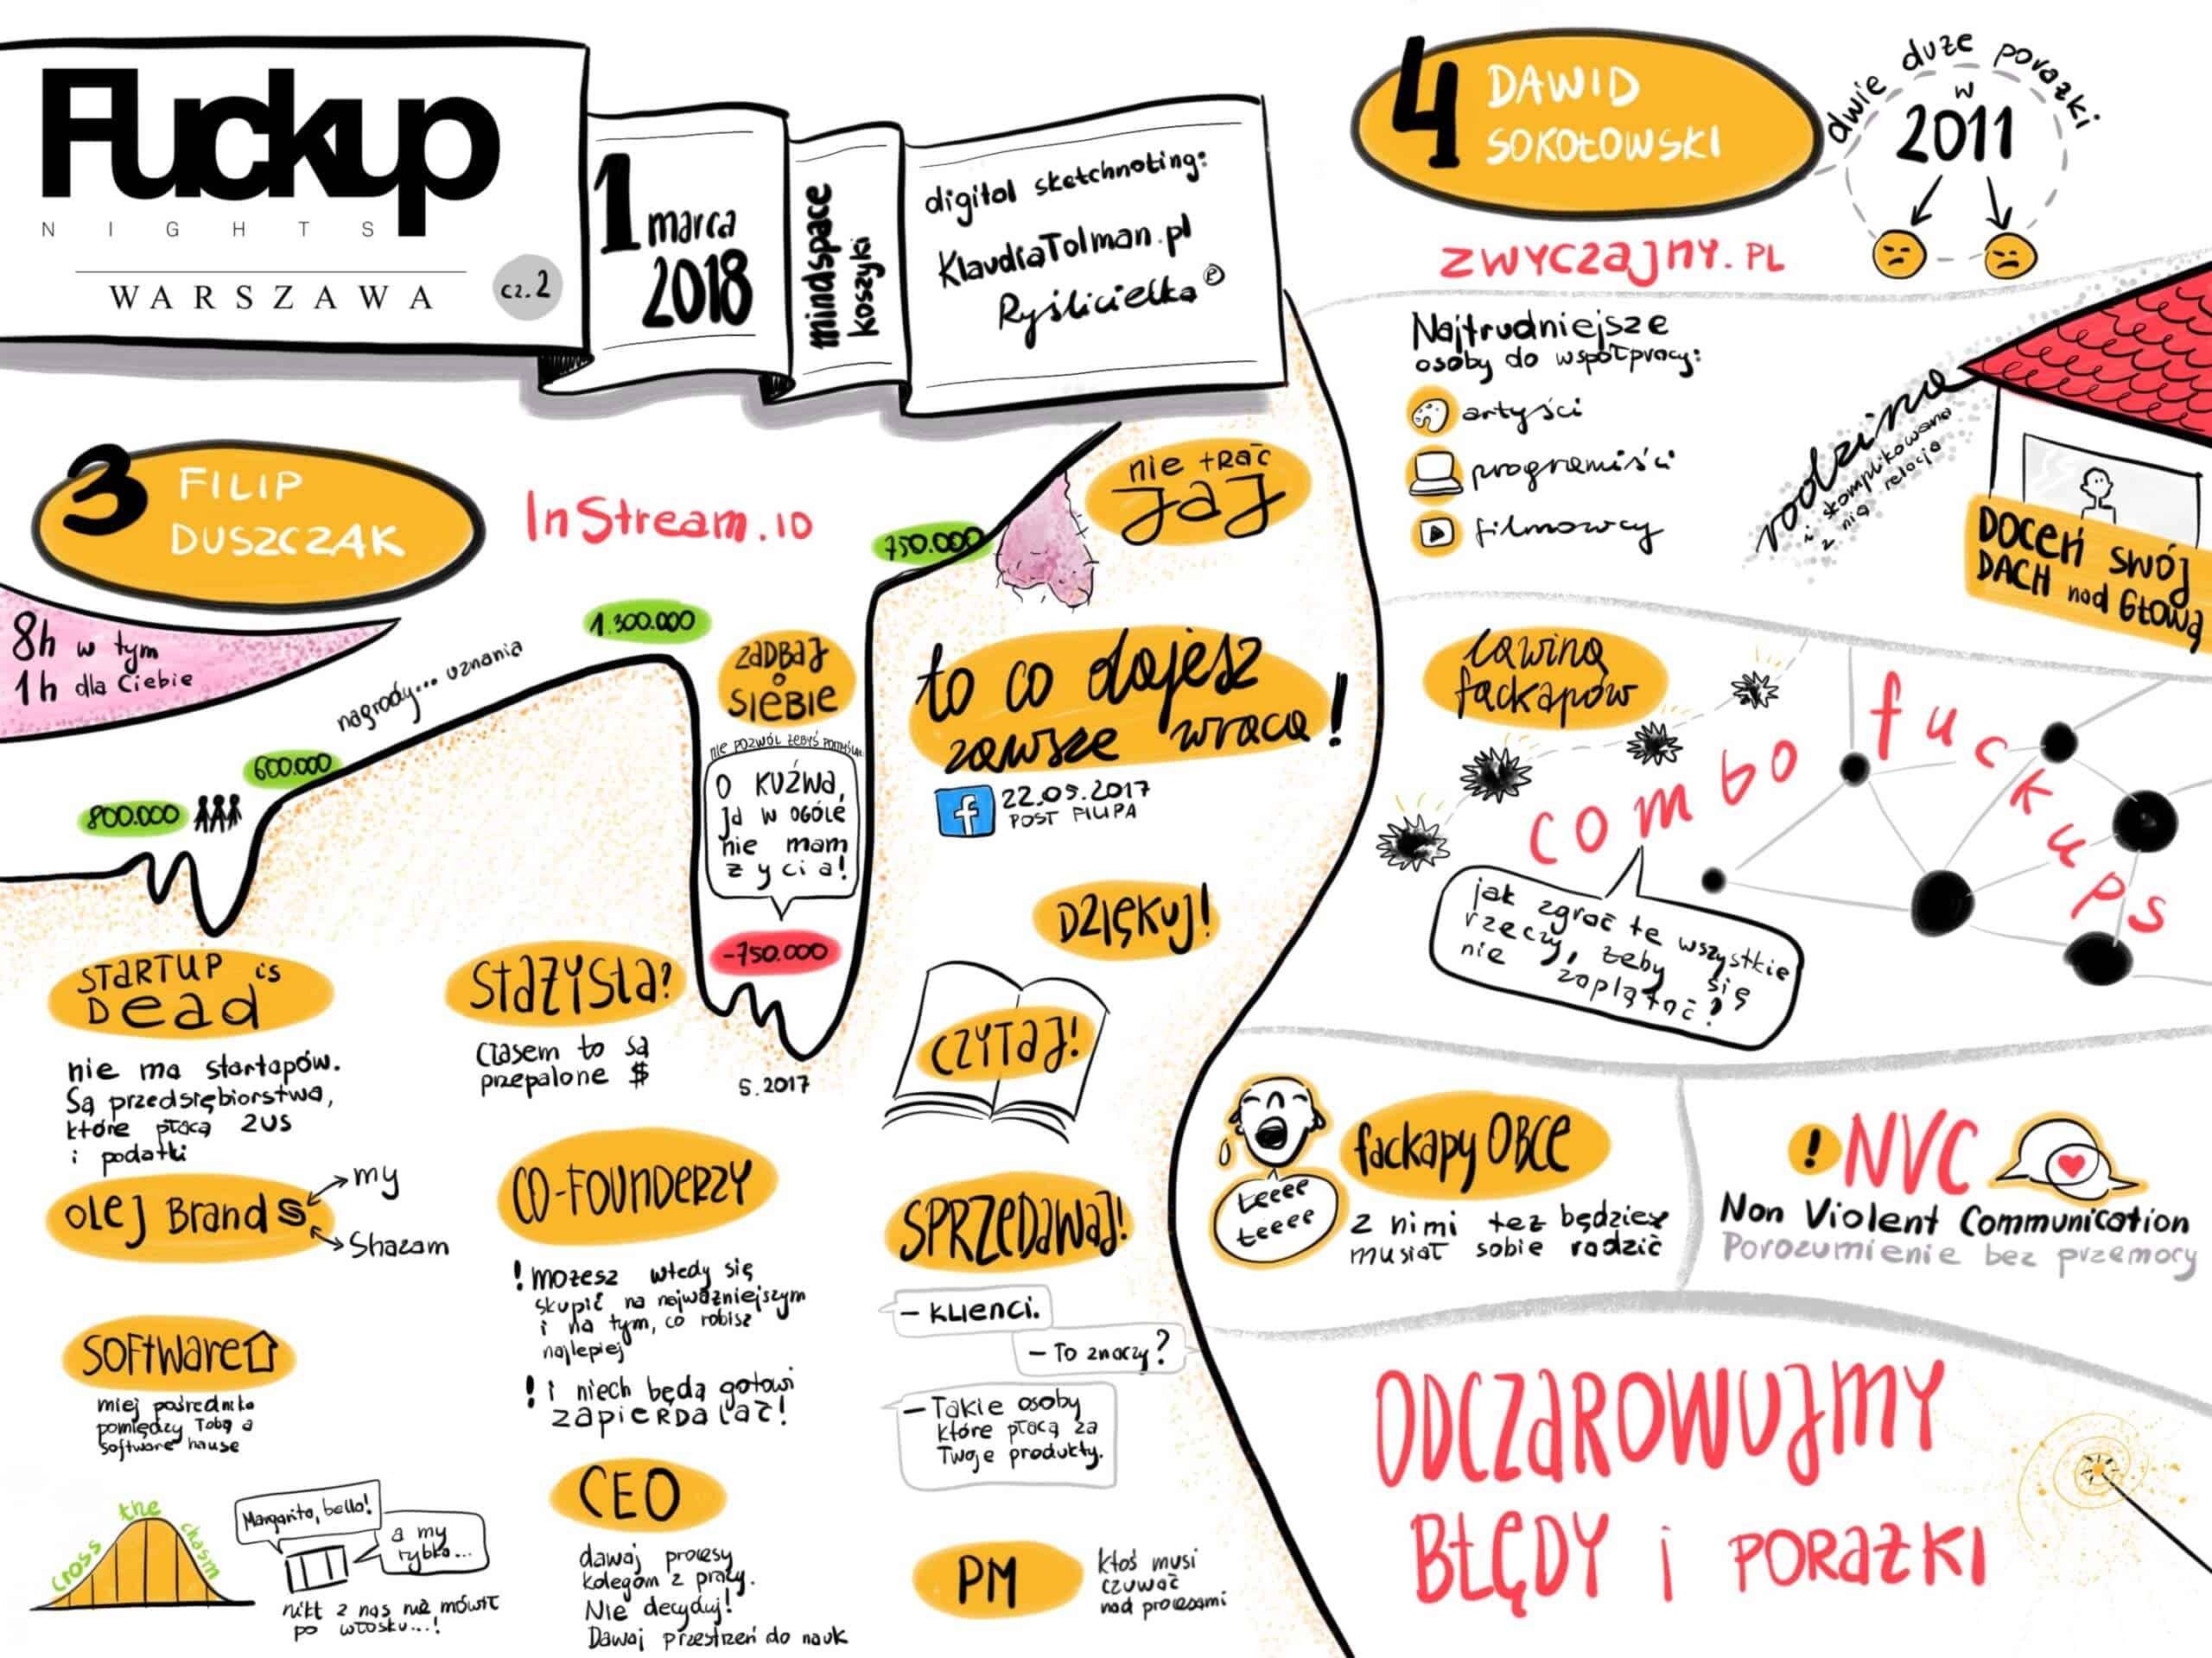 Fuckup
NIGHTS
WARSZAWA
cz. 2
1 marca
2018
mindspace
koszyki
digital sketchnoting:
KlaudiaTolman.pl
Ryślicielka
3 FILIP
DUSZCZAK
InStream.io
8h w tym
1h dla Ciebie
800.000
600.000
nagrody... uznania
1.300.000
ZADBAJ
o
SIEBIE
nie pozwól żebyś pomyślał
O KUŹWA,
ja w ogóle
nie mam
życia!
-750.000
5.2017
750.000
nie trać
JAJ
to co dajesz
zawsze wraca!
f
22.05.2017
POST FILIPA
DZIĘKUJ!
CZYTAJ!
STARTUP is
Dead
nie ma startapów.
Są przedsiębiorstwa,
które płacą ZUS
i podatki
olej Brands
my
Shazam
Software
miej pośrednika
pomiędzy Tobą a
software hause
cross the chasm
Margarito, bello!
a my
rybka...
nikt z nas nie mówił
po włosku...!
Stażysta?
czasem to są
przepalone $
CO-FOUNDERZY
! możesz wtedy się
skupić na najważniejszym
i na tym, co robisz
najlepiej
! i niech będą gotowi
zapierdalać!
CEO
dawaj procesy
kolegom z pracy.
Nie decyduj!
Dawaj przestrzeń do nauk
SPRZEDAWAJ!
- Klienci.
- To znaczy?
- Takie osoby
które płacą za
Twoje produkty.
PM
ktoś musi
czuwać
nad procesami
4 DAWID
SOKOŁOWSKI
zwyczajny.pl
dwie duże porażki
w
2011
Najtrudniejsze
osoby do współpracy:
artyści
programiści
filmowcy
rodzina
i skomplikowana
z nią relacja
DOCEŃ SWÓJ
DACH nad Głową
Lawina
fackapów
combo fuckups
jak zgrać te wszystkie
rzeczy, żeby się
nie zaplątać?
teeee
teeee
fackapy OBCE
z nimi też będziesz
musiał sobie radzić
! NVC
Non Violent Communication
Porozumienie bez przemocy
ODCZAROWUJMY
BŁĘDY i PORAŻKI